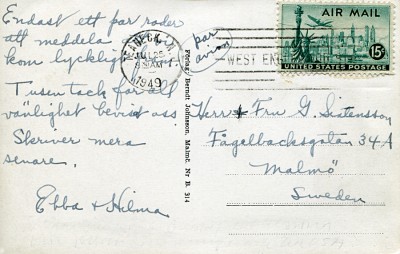 Endast ett par rader
att meddela
kom lycklig
Tusen tack för all
vänlighet bevist oss
Skriver mera
senare.
Ebba + Hilma
TEANECK, N.J.
JUL 25
9 30 AM
1949
par
avion
WEST EN
AIR MAIL
15¢
UNITED STATES POSTAGE
Förlag: Berndt Johnson, Malmö Nr B. 314
Herr + Fru G.
Fågelbacksgatan 34A
Malmö
Sweden